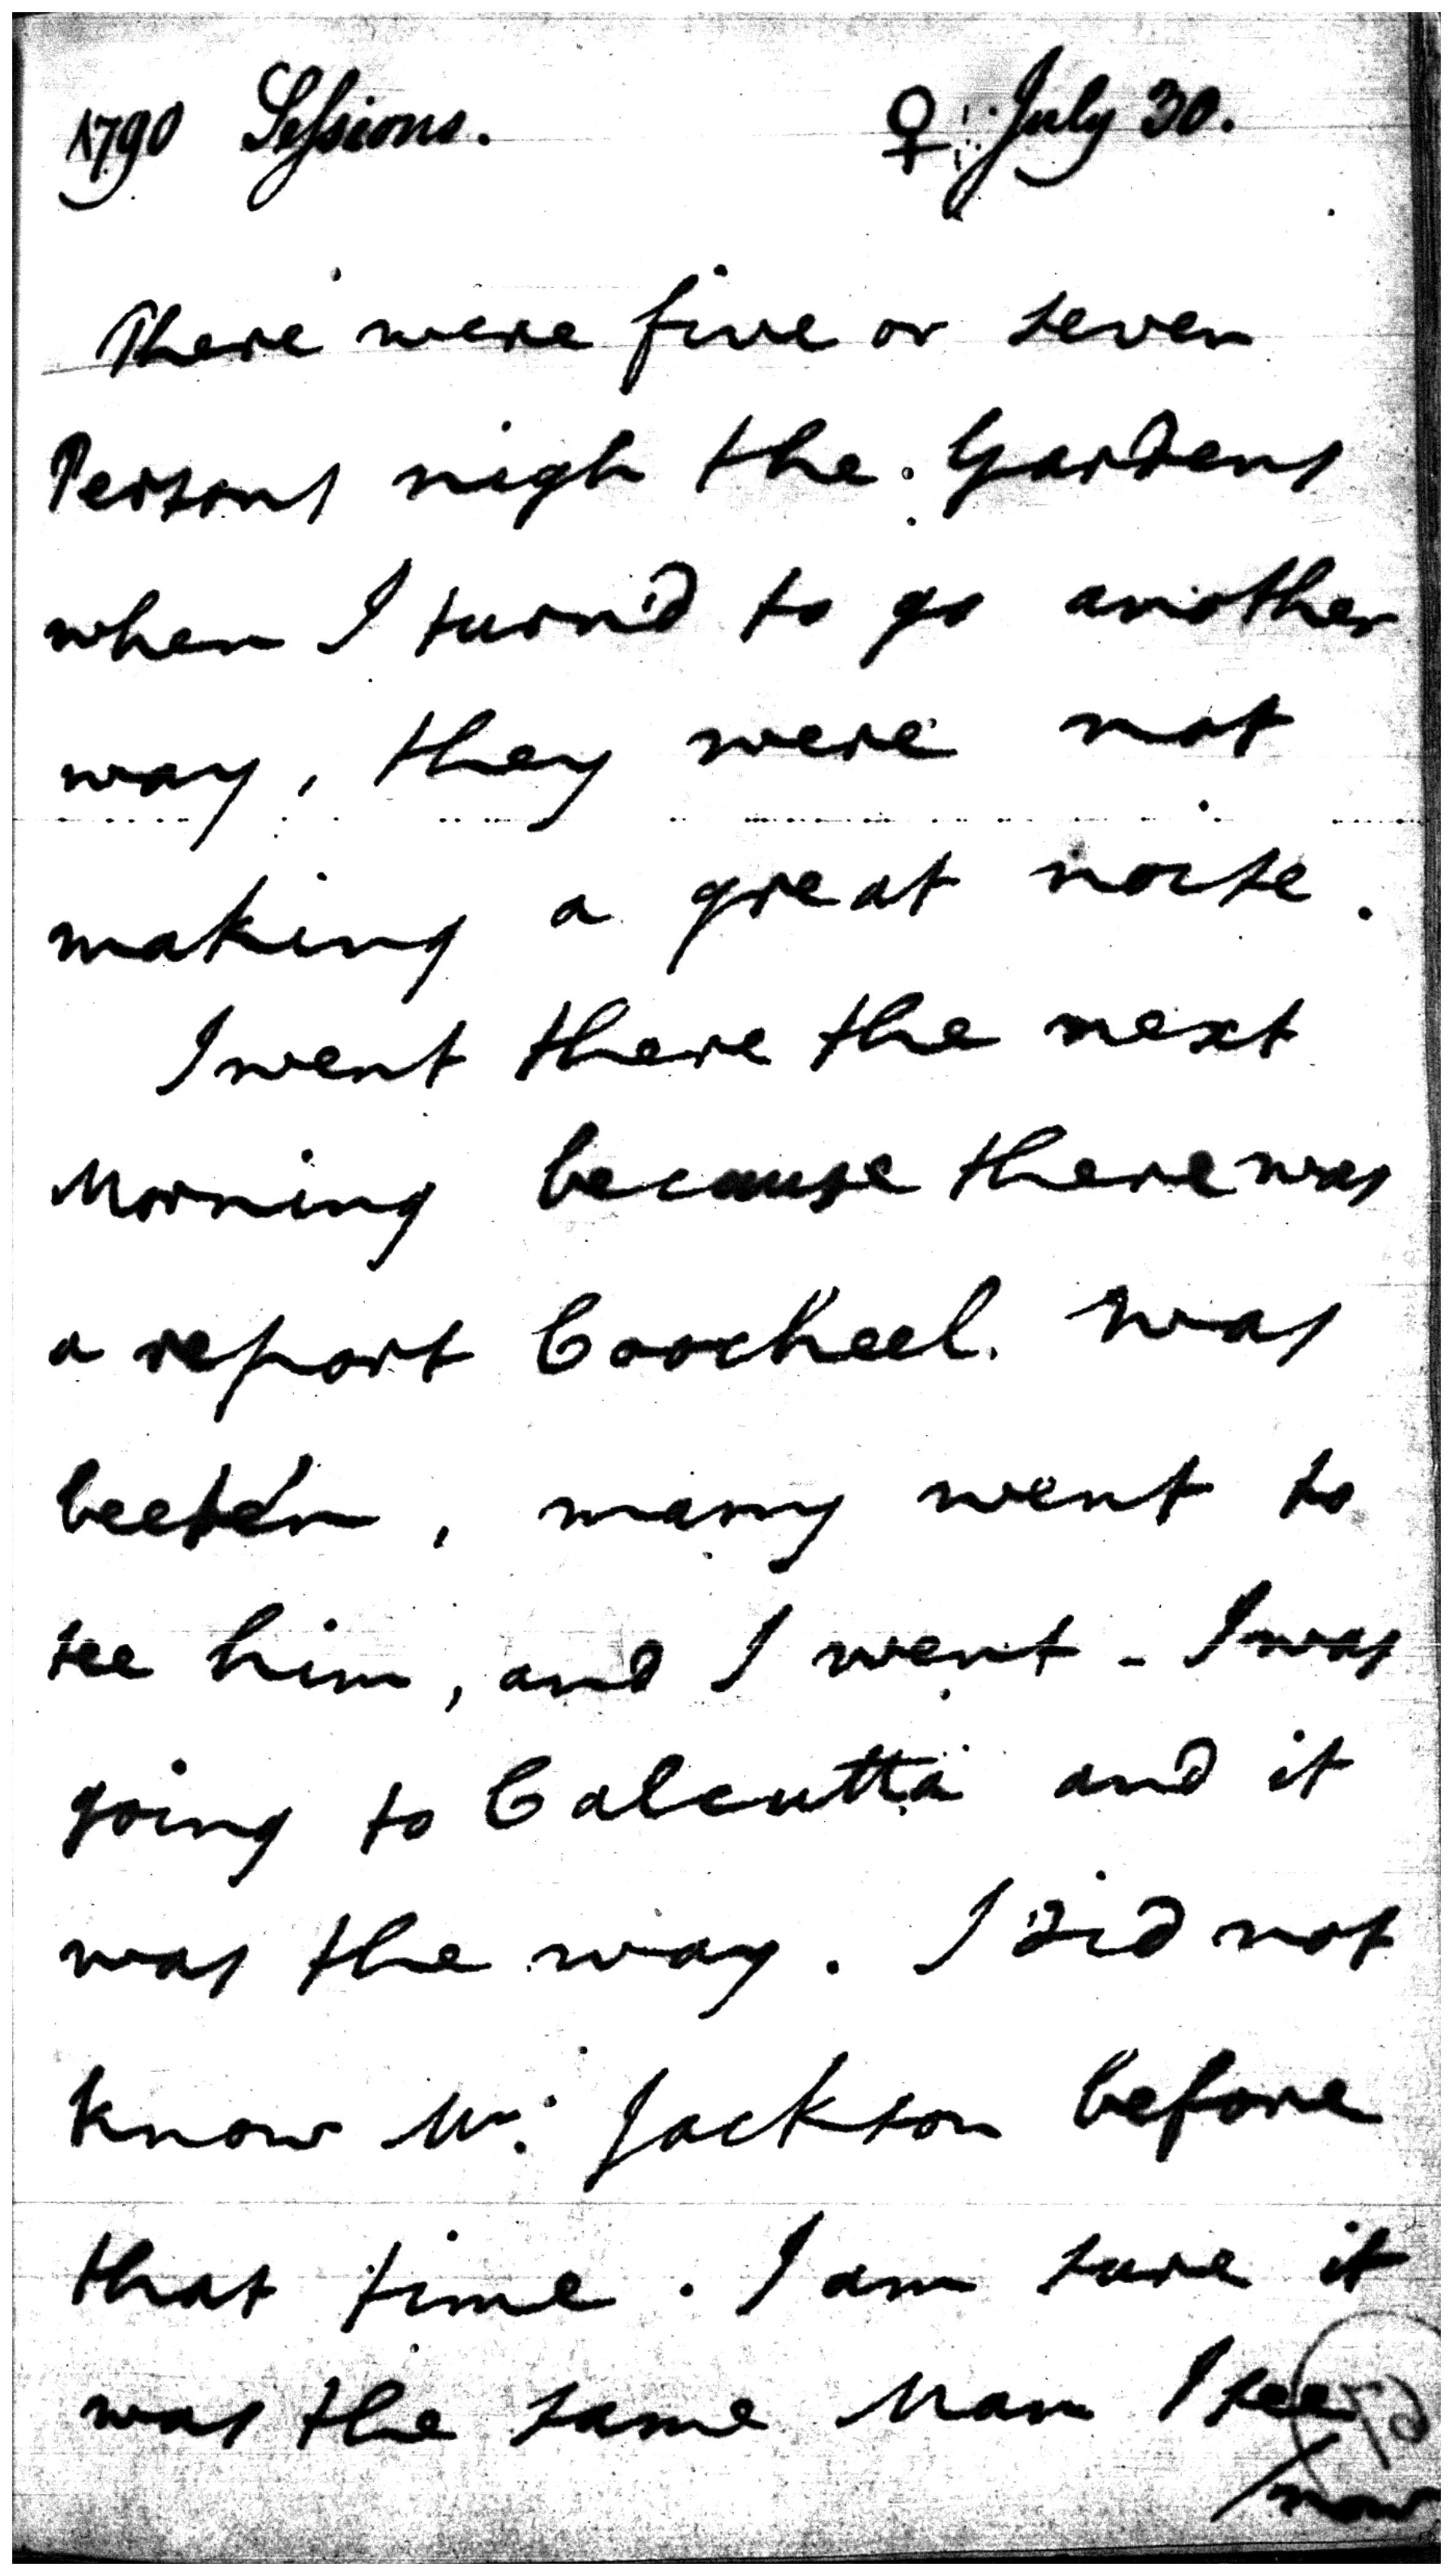 1790 Sessions. ♀ July 30.
There were five or seven
Persons nigh the Gardens
when I turn'd to go another
way, they were not
making a great noise.
I went there the next
Morning because there was
a report Coocheel was
beeten, many went to
see him, and I went - I was
going to Calcutta and it
was the way. I did not
know Mr. Jackson before
that time. I am sure it
was the same Man I see
/now